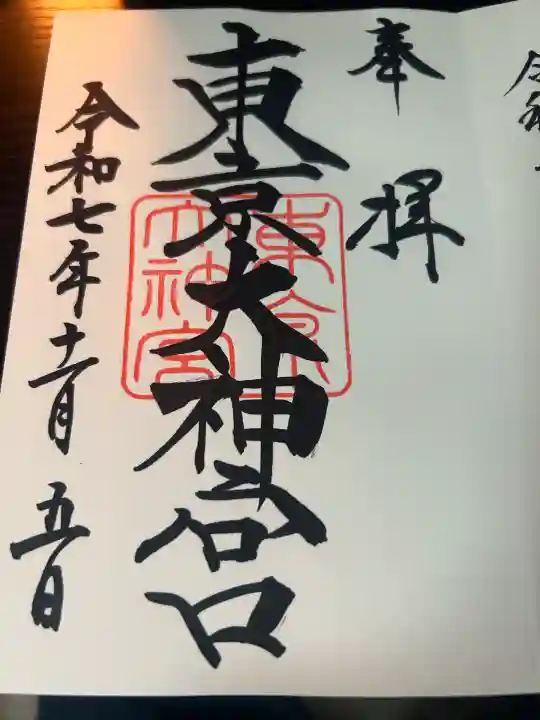 奉拝
東京大神宮
東京大神宮
令和七年十一月五日
令和